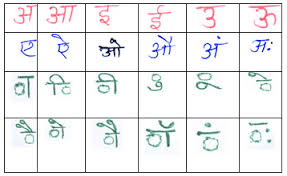 अ आ इ ई उ ऊ
ए ऐ ओ औ अं अः
◌ा ◌ि ◌ी ◌ु ◌ू ◌े
◌ै ◌ो ◌ौ ◌ं ◌ः